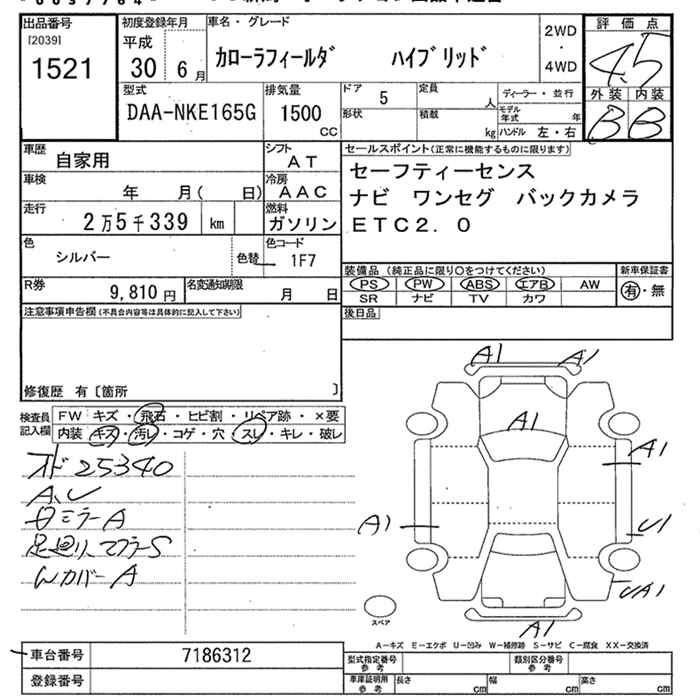 出品番号
[2039]
1521
初度登録年月
平成
30 6月
車名・グレード
カローラフィールダ ハイブリッド
2WD
・
4WD
評価点
4.5
外装 内装
B B
型式
DAA-NKE165G
排気量
1500
cc
ドア
5
定員
人
形状
積載
kg
ディーラー・並行
モデル年式 年
ハンドル 左・右
車歴
自家用
シフト
AT
車検
年 月( 日)
冷房
AAC
走行
2万5千339 km
燃料
ガソリン
色
シルバー
色替
色コード
1F7
R券
9,810円
名変通知期限
月 日
セールスポイント(正常に機能するものに限ります)
セーフティーセンス
ナビ ワンセグ バックカメラ
ETC2.0
装備品(純正品に限り○をつけてください)
PS PW ABS エアB AW
SR ナビ TV カワ
新車保証書
有・無
後日品
注意事項申告欄(不具合内容等は具体的に記入して下さい)
修復歴 有〔箇所 〕
検査員
記入欄
FW キズ・飛石・ヒビ割・リペア跡・×要
内装 キズ・汚レ・コゲ・穴・スレ・キレ・破レ
オド25340
A、U
日ミラーA
足廻り、マフラーS
WカバーA
A1 A1
A1
A1
A1
U1
UA1
A1
スペア
A−キズ E−エクボ U−凹み W−補修跡 S−サビ C−腐食 XX−交換済
車台番号
7186312
登録番号
型式指定番号
参考
類別区分番号
参考
車庫証明用
参考
長さ cm
幅 cm
高さ cm